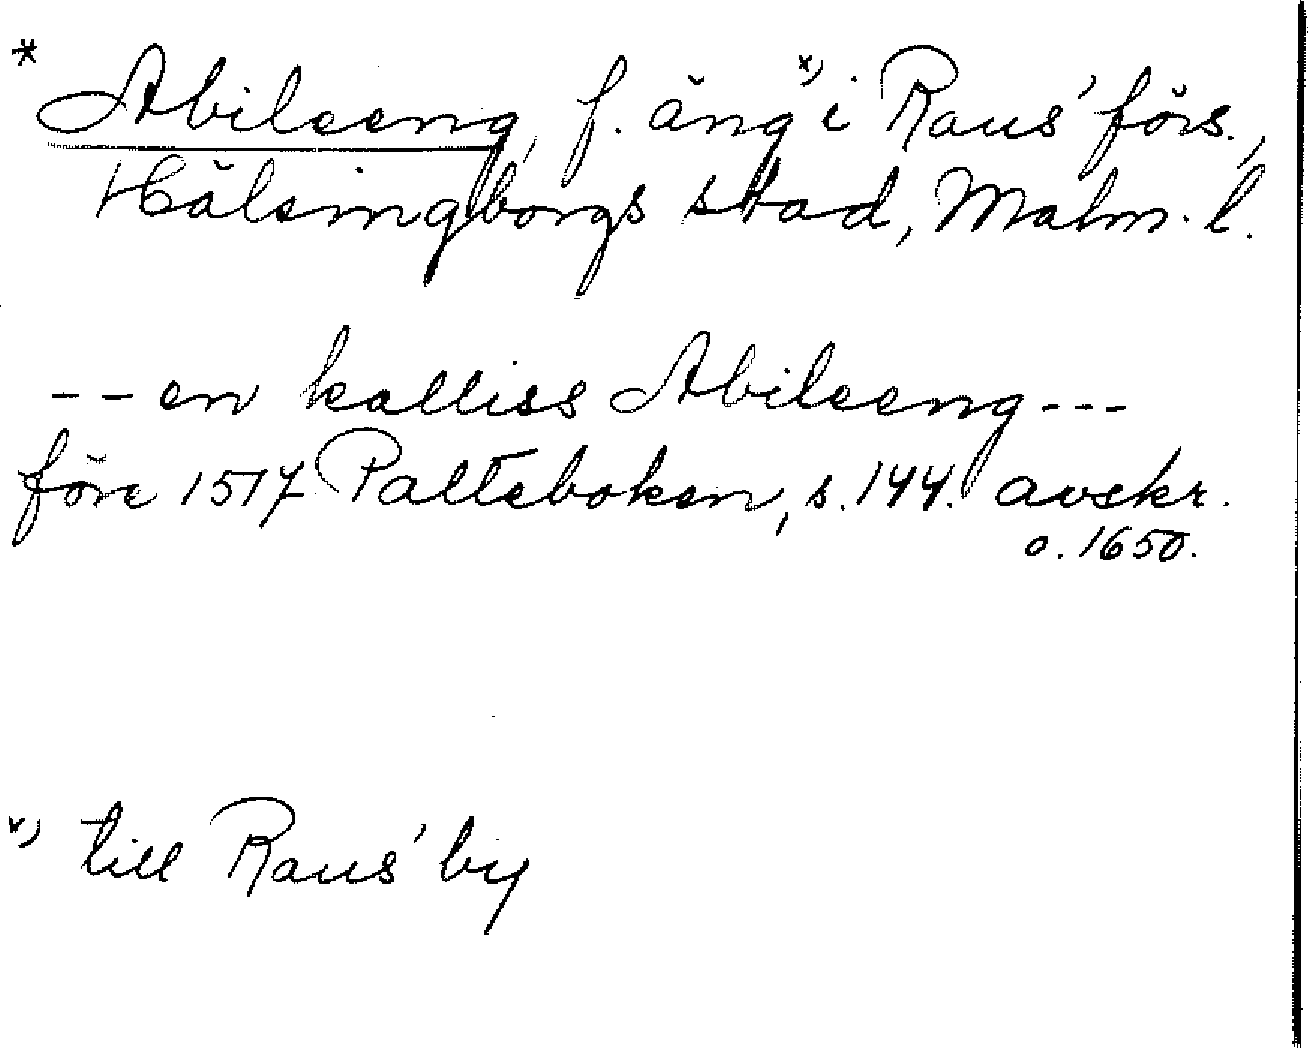 * Abileeng, f. äng x) i Raus' förs.,
Hälsingborgs stad, Malm. l.
-- en kalliss Abileeng ---
före 1517 Palteboken, s. 144. avskr.
o. 1650.
x) till Raus' by